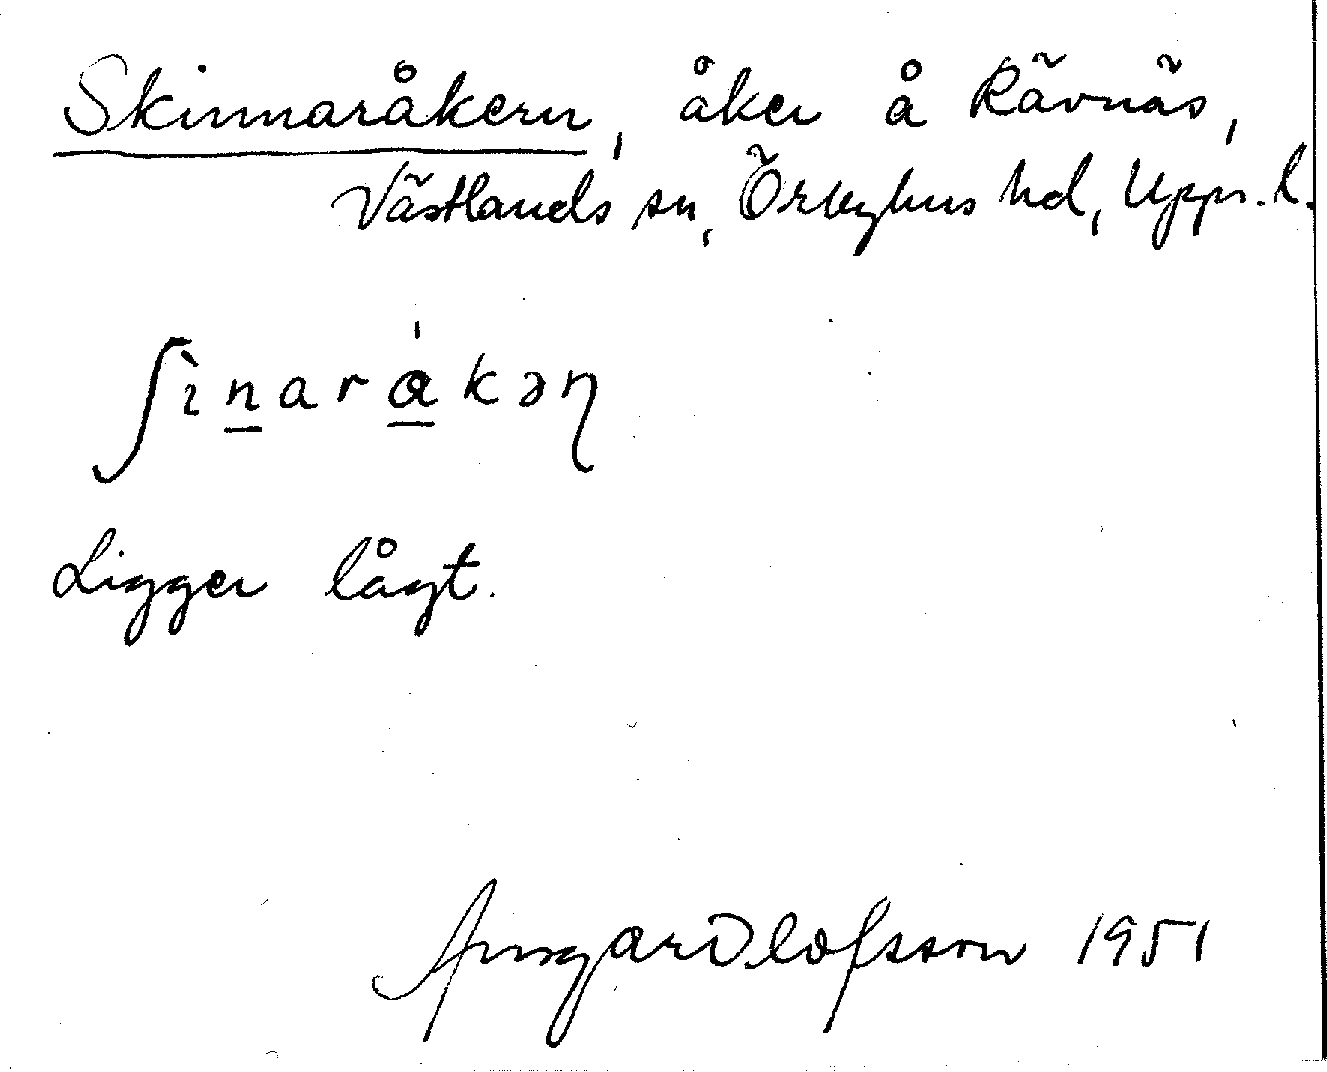 Skinnaråkern, åker å Rävnäs,
Västlands sn, Örbyhus hd, Upps. l.
ʃìnaråkəɳ
Ligger lågt.
Ansgar Olofsson 1951